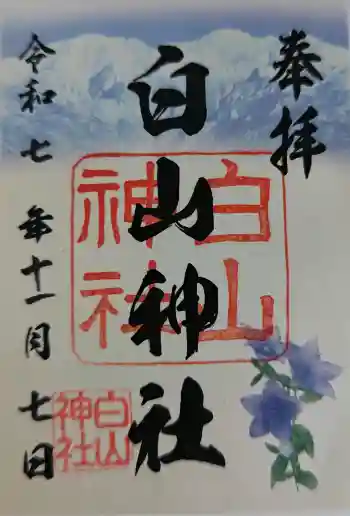 奉拝
白山神社
白山
神社
令和七年十一月七日
白山
神社